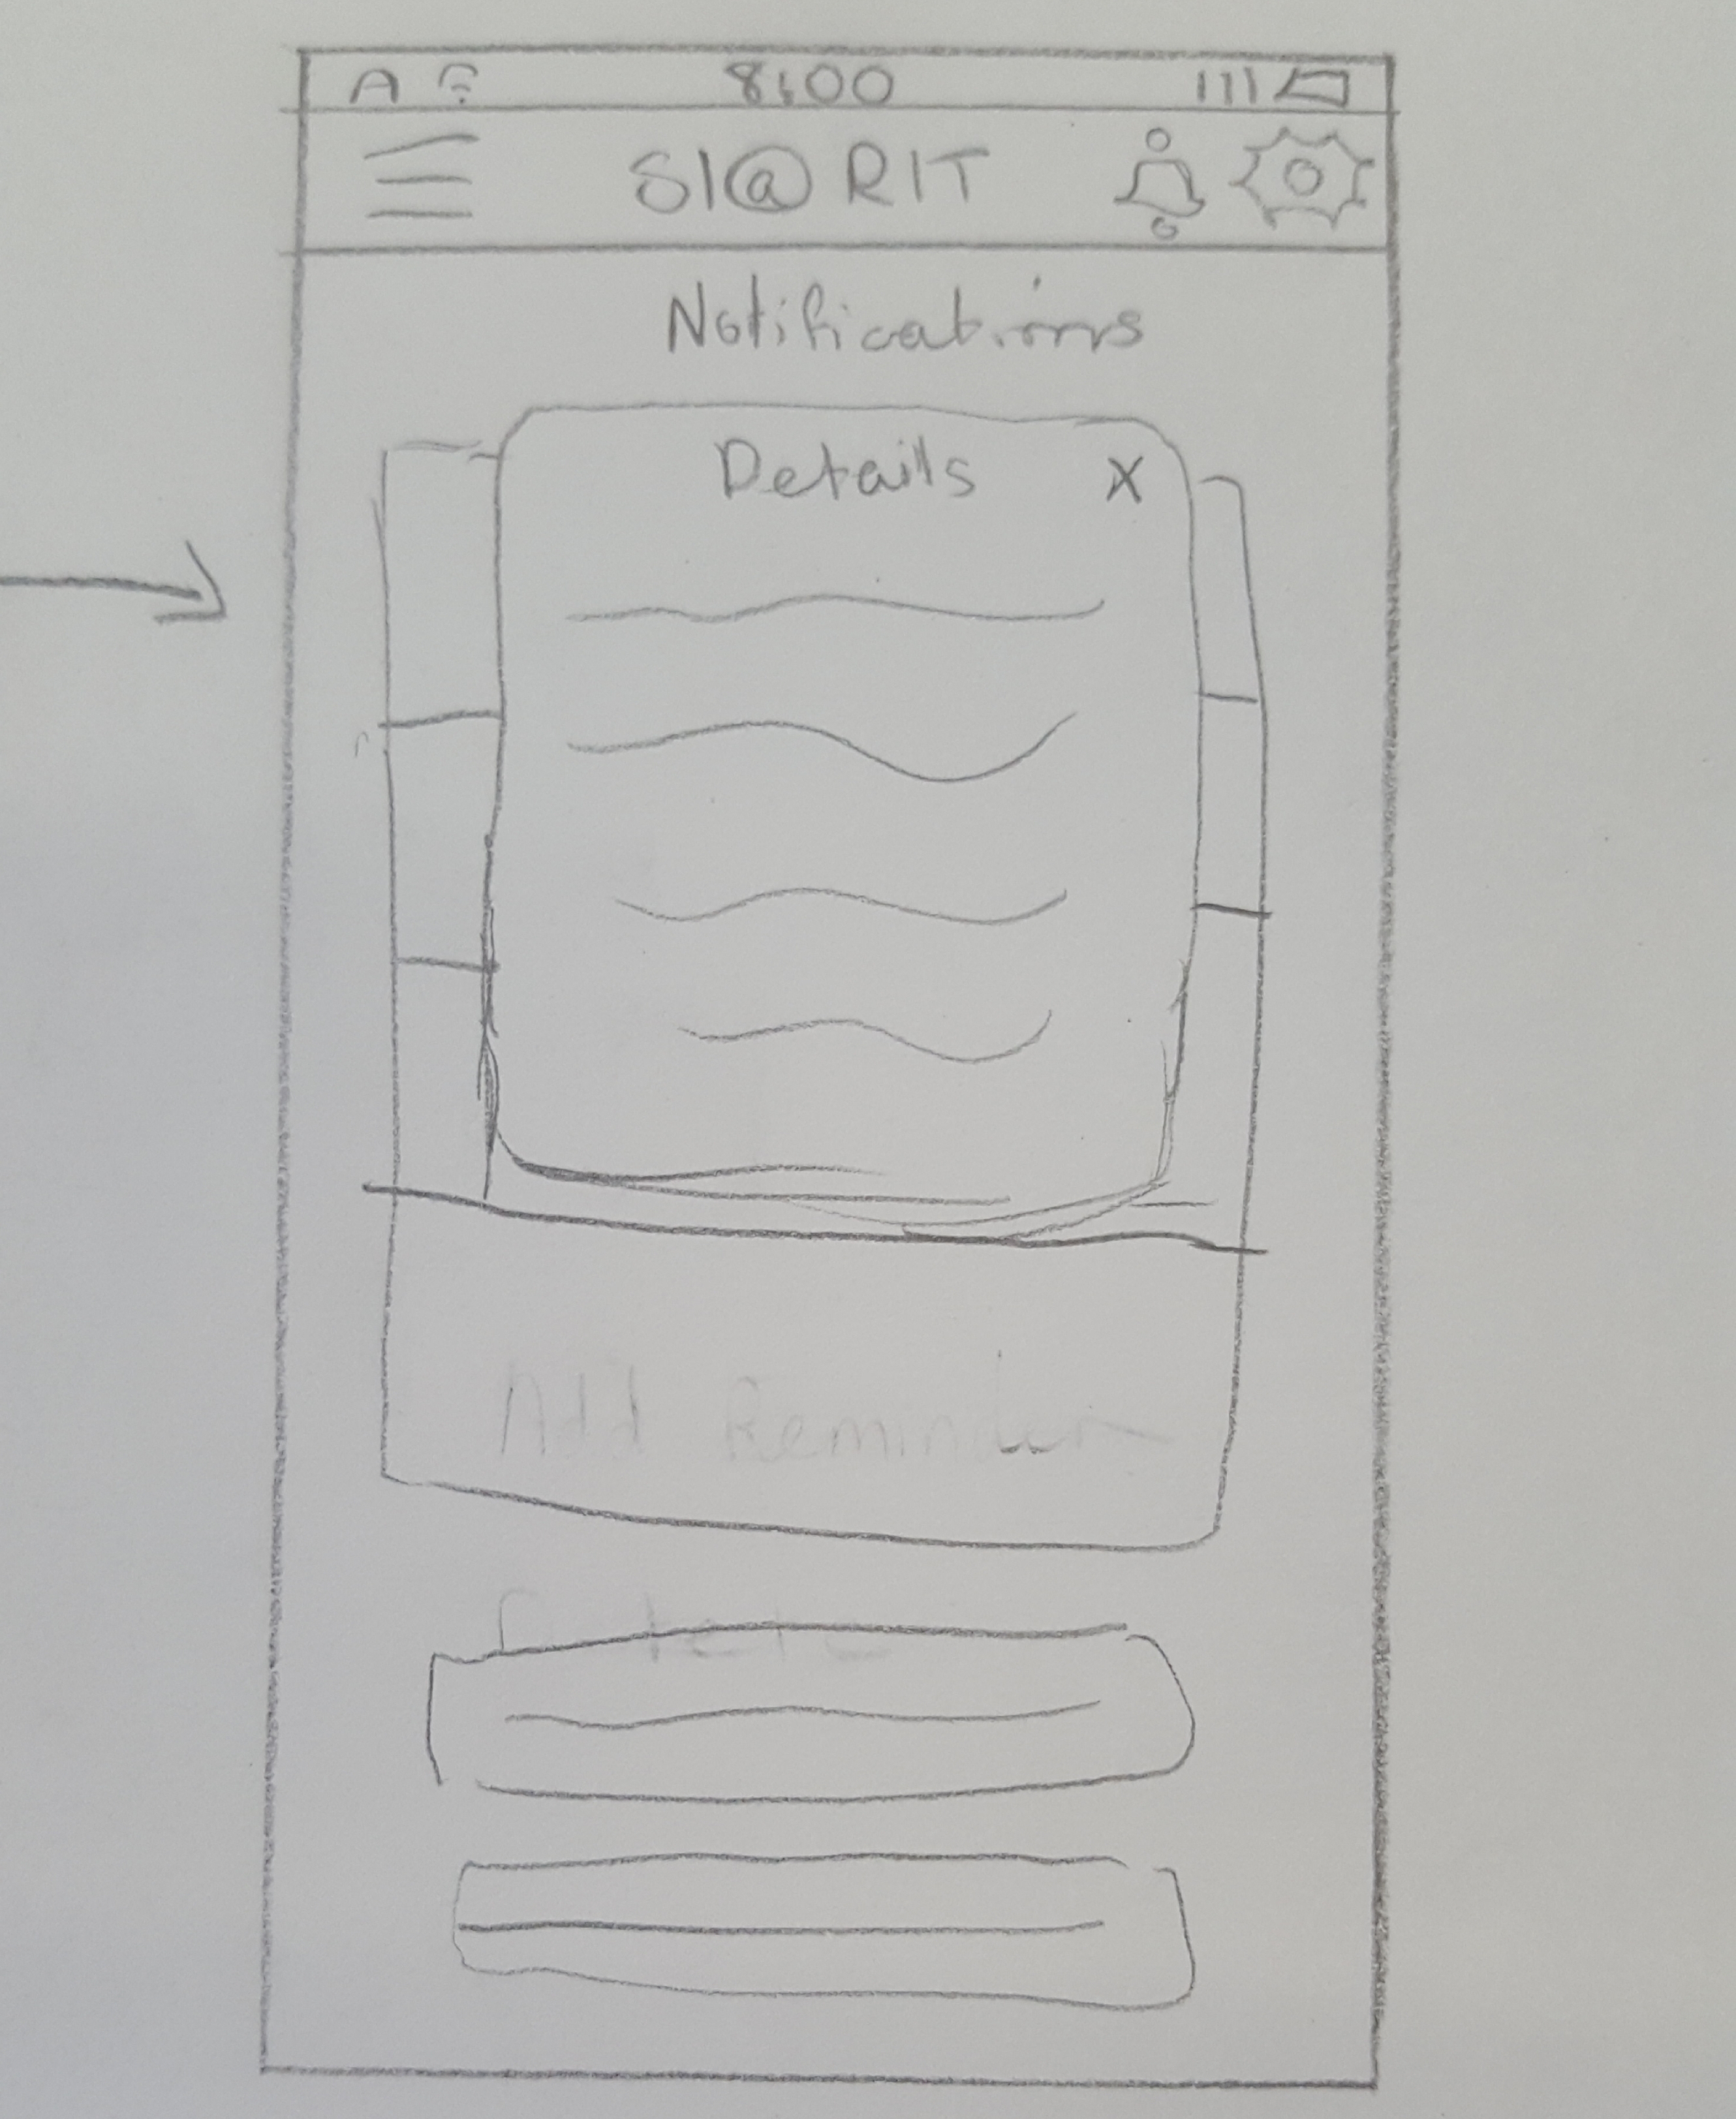 A 8:00
SI@RIT
Notifications
Details X
Add Reminder
Delete